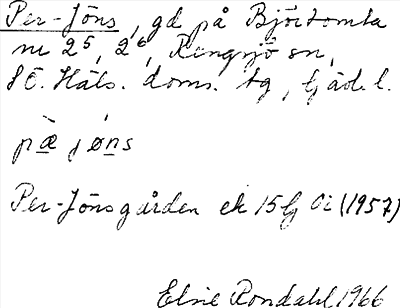 Per-Jöns, gd på Björtomta
nr 2⁵, 2⁶, Rengsjö sn,
SÖ. Häls. doms. tg, Gävleb. l.
pæ jøns
Per-Jönsgården ek 15G (1957)
Elsie Rondahl 1966